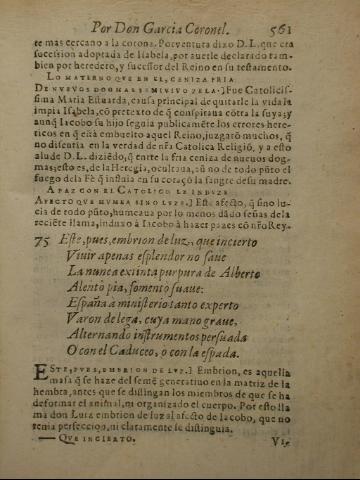 Por Don Garcia Coronel. 561
te mas cercano a la corona. Porventura dixo D.L. que era
sucession adoptada de Isabela, por auerle declarado tam-
bien por heredero, y sucessor del Reino en su testamento.
LO MATERNO QVE EN EL, CENIZA FRIA
DE NVEVOS DOGMAS SEMIVIVO ZELA.] Fue Catolicis-
sima Maria Estuarda, causa principal de quitarle la vida la
impia Isabela, cō pretexto de q̄ conspiraua cōtra la suya; y
aunq̄ Iacobo su hijo seguia publicamēte los errores hereti-
cos en q̄ està embuelto aquel Reino, juzgarō muchos, q̄
no disentia en la verdad de nr̄a Catolica Religiō, y a esto
alude D.L. diziēdo, q̄ entre la fria ceniza de nueuos dog-
mas; esto es, de la Heregia, ocultaua, si no de todo pūto el
fuego de la Fè q̄ instaua en su coraçō la sangre de su madre.
A PAZ CON EL CATOLICO LE INDVZE
AFECTO QVE HVMEA SINO LVZE.] Este afecto, q̄ sino lu-
cia de todo pūto, humeaua por lo menos dādo señas de la
reciēte llama, induxo à Iacobo à hazer pazes cō nr̄o Rey.
75 Este, pues, embrion de luz, que incierto
Viuir apenas esplendor no saue
La nunca extinta purpura de Alberto
Alentò pia, fomentò suaue:
España a ministerio tanto experto
Varon delega, cuya mano graue,
Alternando instrumentos persuada
O con el Caduceo, o con la espada.
ESTE, PVES, EMBRION DE LVZ.] Embrion, es aquella
masa q̄ se haze del semē generatiuo en la matriz de la
hembra, antes que se distingan los miembros de que se ha
de formar el animal, ni organizado el cuerpo. Por esto lla
ma don Luis embrion de luz al afecto de Iacobo, que no
tenia perfeccion, ni claramente se distinguia.
— QVE INCIERTO. Vi-